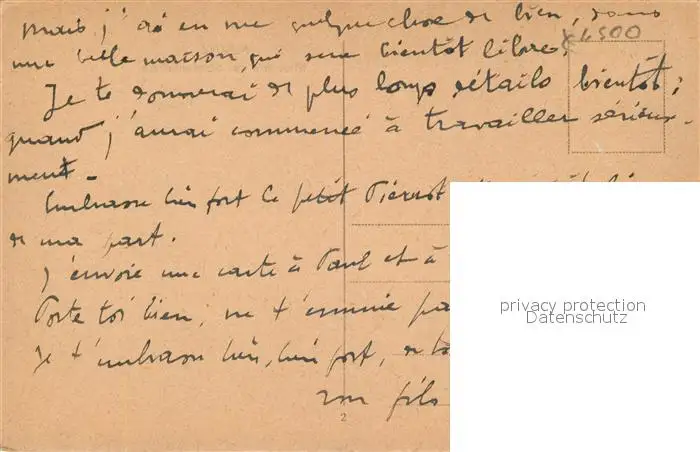 mais j'ai en vue quelque chose de bien, dans
une belle maison qui sera bientôt libre.
4500
Je te donnerai de plus longs détails bientôt;
quand j'aurai commencé à travailler sérieuse-
ment.
Embrasse bien fort le petit Pierrot
de ma part.
J'envoie une carte à Paul et à
Porte toi bien, ne t'ennuie pas
Je t'embrasse bien, bien fort, de to
ton fils
2
privacy protection
Datenschutz